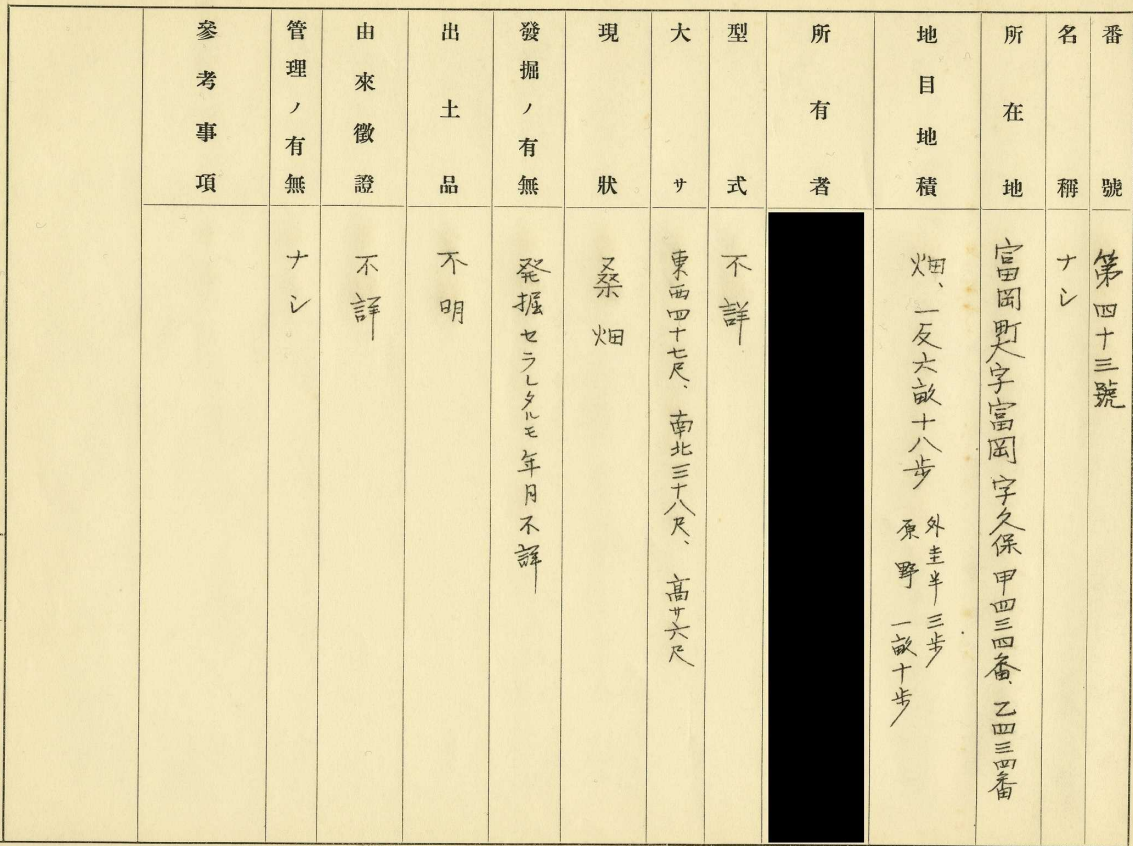 番號 第四十三號
名稱 ナシ
所在地 富岡町大字富岡字久保甲四三四番、乙四三四番
地目地積 畑、一反六畝十八步 外圭半三步
原野一畝十步
所有者
型式 不詳
大サ 東西四十七尺、南北三十八尺、高サ六尺
現狀 桑畑
發掘ノ有無 発掘セラレタルモ年月不詳
出土品 不明
由來徵證 不詳
管理ノ有無 ナシ
參考事項